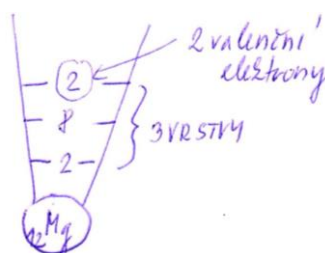 2 valenční
elektrony
2
8
3 VRSTVY
2
12Mg